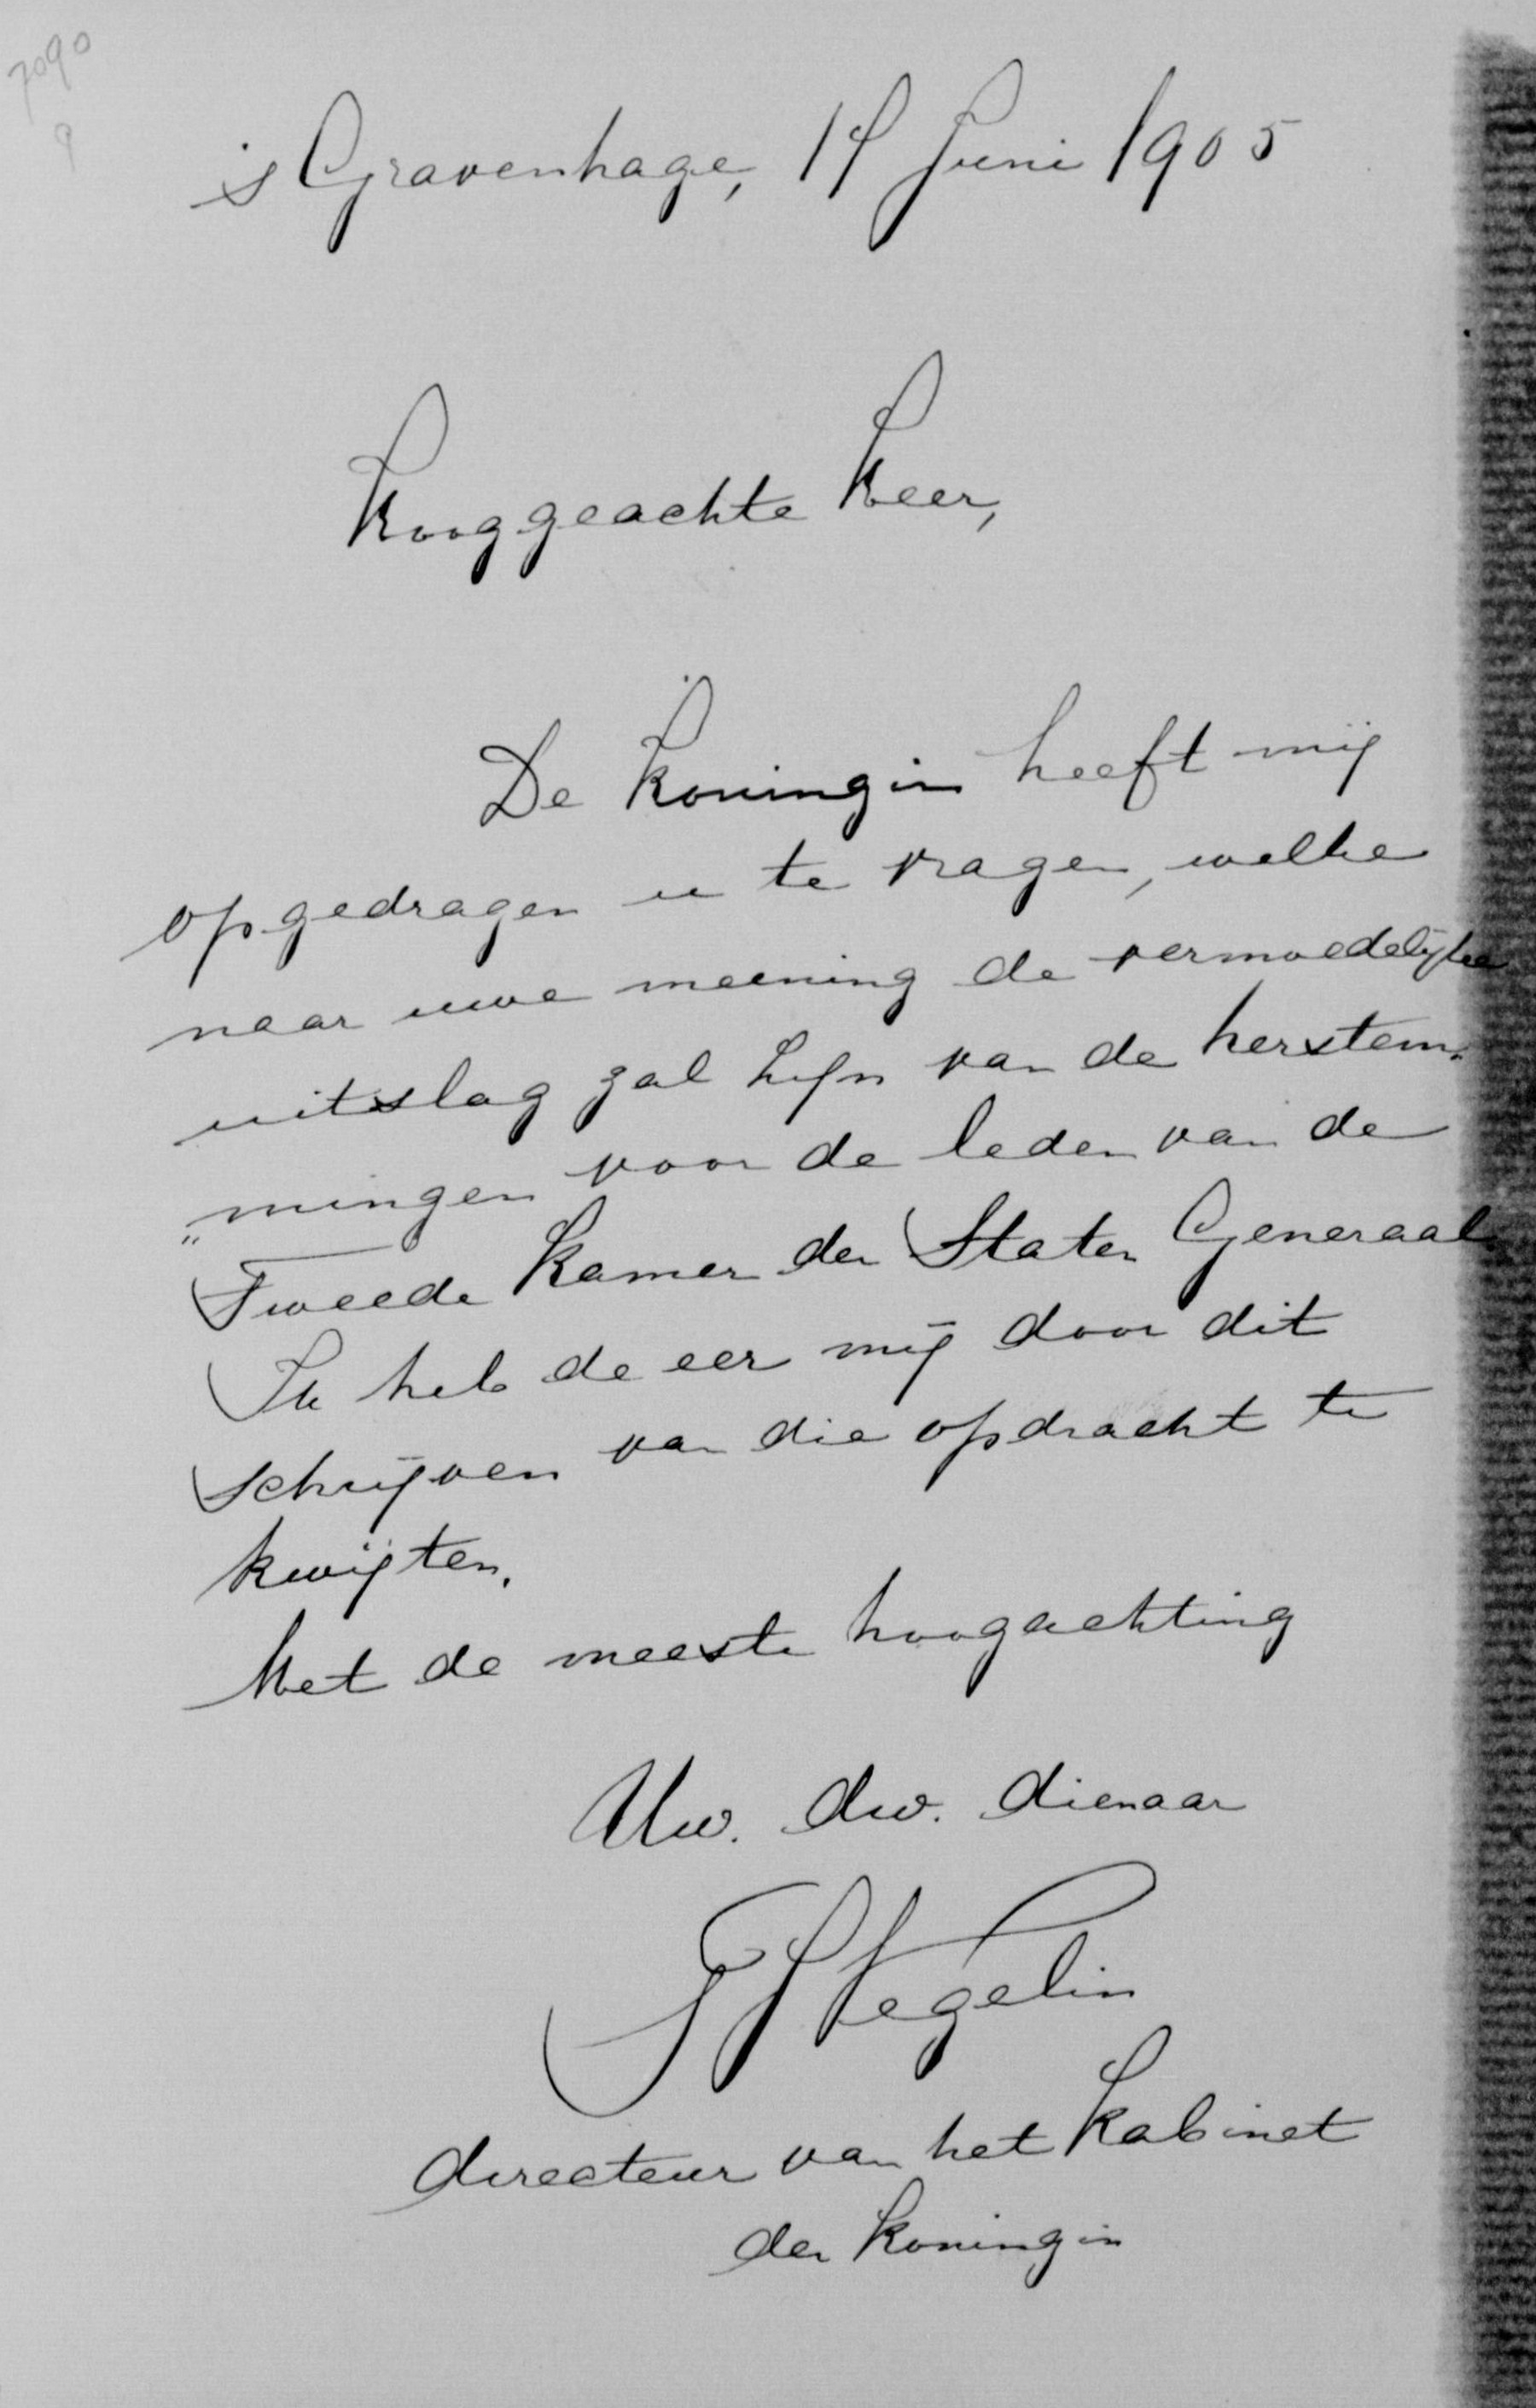 7090
9
's Gravenhage, 17 Juni 1905
Hooggeachte Heer,
De Koningin heeft mij
opgedragen u te vragen, welke
naar uwe meening de vermoedelijke
uitslag zal zijn van de herstem„
„mingen voor de leden van de
Tweede Kamer der Staten Generaal
Ik heb de eer mij door dit
schrijven van die opdracht te
kwijten.
Met de meeste hoogachting
Uw. dw. dienaar
Vegelin
directeur van het Kabinet
der Koningin